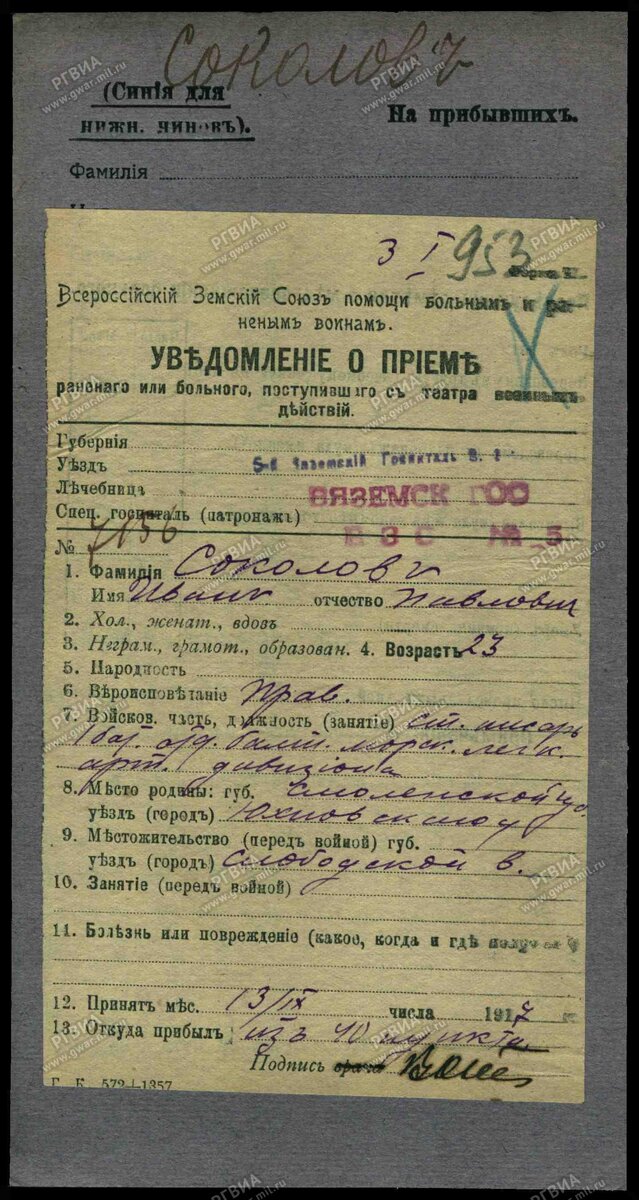 Соколовъ
(Синія для
нижн. чиновъ).
На прибывшихъ.
Фамилія
3 I 953
Всероссійскій Земскій Союзъ помощи больнымъ и ра-
ненымъ воинамъ.
УВѢДОМЛЕНІЕ О ПРІЕМѢ
раненаго или больного, поступившаго съ театра военныхъ
дѣйствій.
Губернія
Уѣздъ
5-й Вяземскій Госпиталь В.
Лѣчебница
ВЯЗЕМСК ГОС
Спец. госпиталь (патронажъ)
ВЗС № 5
№ 7156
1. Фамилія Соколовъ
Имя Иванъ отчество Павлович
2. Хол., женат., вдовъ
3. Неграм., грамот., образован. 4. Возрастъ 23
5. Народность
6. Вѣроисповѣданіе Прав.
7. Войсков. часть, должность (занятіе) ст. писарь
1 бат. отд. балт. морск. легк.
арт. дивизіона
8. Мѣсто родины: губ. Смоленской
уѣздъ (городъ) Юхновскаго у
9. Мѣстожительство (передъ войной) губ.
уѣздъ (городъ) Слободской в.
10. Занятіе (передъ войной)
11. Болѣзнь или поврежденіе (какое, когда и гдѣ получена
12. Принятъ мѣс. 13/IX числа 1917
13. Откуда прибылъ изъ 40 пункта
Подпись врача
Г. К. 572—1357
РГВИА
www.gwar.mil.ru